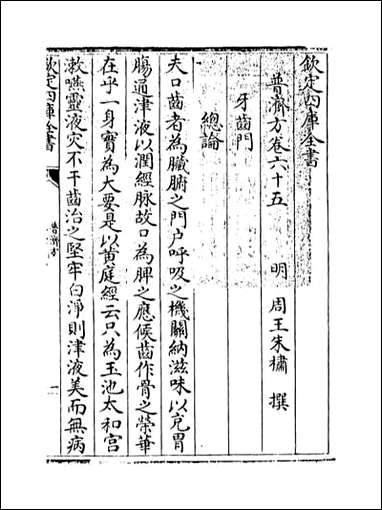 欽定四庫全書
普濟方卷六十五
明 周王朱橚 撰
牙齒門
總論
夫口齒者為臟腑之門户呼吸之機關納滋味以充胃
腸通津液以潤經脉故口為脾之應候齒作骨之榮華
在乎一身實為大要是以黄庭經云只為玉池太和宫
漱嚥靈液灾不干齒治之堅牢白淨則津液美而無病
欽定四庫全書
普濟方
一